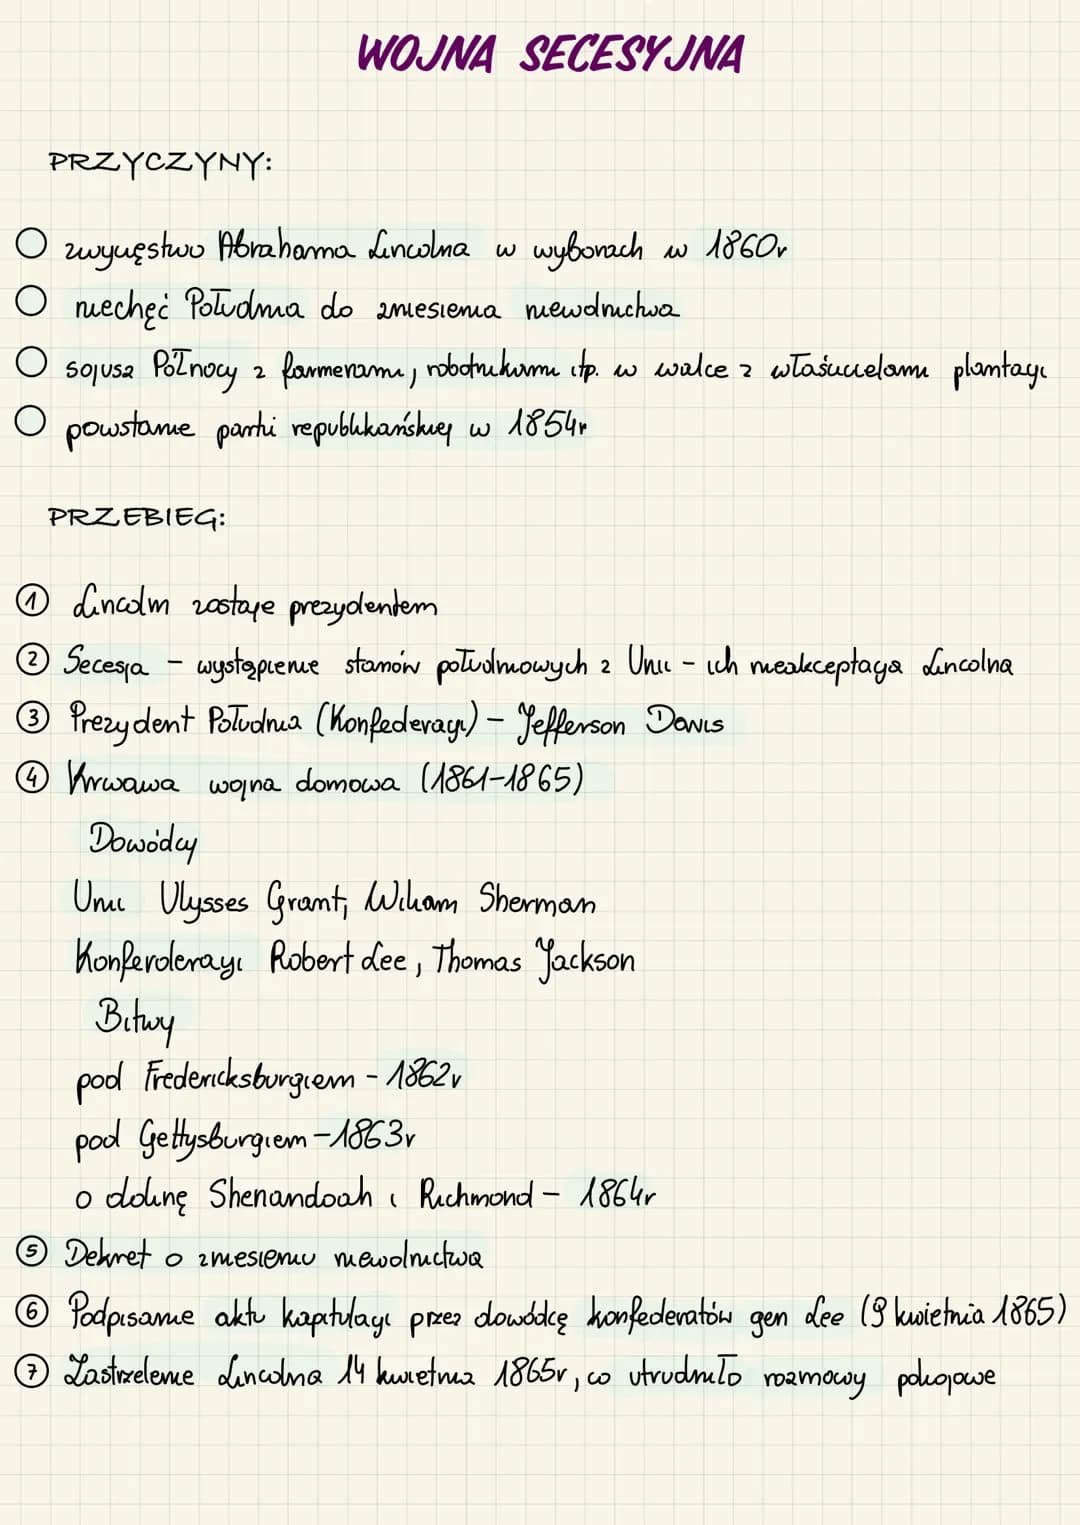 WOJNA SECESYJNA
PRZYCZYNY:
○ zwycięstwo Abrahama Lincolna w wyborach w 1860r
○ niechęć Południa do zniesienia niewolnictwa
○ sojusz Północy z farmerami, robotnikami itp. w walce z właścicielami plantacji
○ powstanie partii republikańskiej w 1854r
PRZEBIEG:
① Lincoln zostaje prezydentem
② Secesja - wystąpienie stanów południowych z Unii - ich nieakceptacja Lincolna
③ Prezydent Południa (Konfederacji) - Jefferson Davis
④ Krwawa wojna domowa (1861-1865)
Dowódcy
Unii Ulysses Grant, William Sherman
Konferderacji Robert Lee, Thomas Jackson
Bitwy
pod Fredericksburgiem - 1862r
pod Gettysburgiem - 1863r
o dolinę Shenandoah i Richmond - 1864r
⑤ Dekret o zniesieniu niewolnictwa
⑥ Podpisanie aktu kapitulacji przez dowódcę konfederatów gen Lee (9 kwietnia 1865)
⑦ Zastrzelenie Lincolna 14 kwietnia 1865r, co utrudniło rozmowy pokojowe